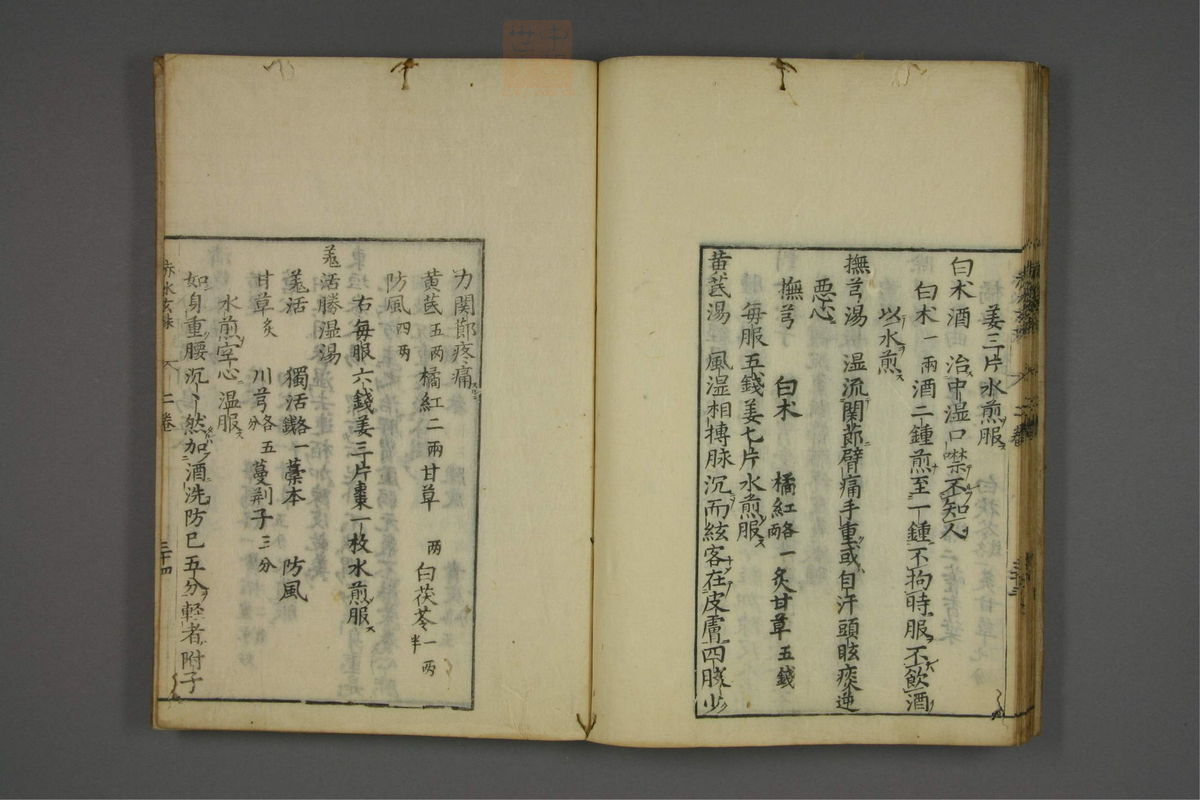 姜三片水煎服
白术酒 治中湿口噤不知人
白术一兩酒二鍾煎至一鍾不拘時服不飲酒
以水煎
撫芎湯 湿流関節臂痛手重或自汗頭眩痰逆
悪心
撫芎 白术 橘紅各一兩 炙甘草五錢
毎服五錢姜七片水煎服
黄芪湯 風湿相搏脉沉而絃客在皮膚四肢少
力関節疼痛
黄芪五兩橘紅二兩甘草 兩 白茯苓一兩半
防風四兩
右毎服六錢姜三片棗一枚水煎服
羗活勝湿湯
羗活 獨活各一錢藁本 防風
甘草炙 川芎各五分蔓荆子三分
水煎空心温服
如身重腰沉〻然加酒洗防已五分軽者附子
赤水玄珠 二卷 三十四